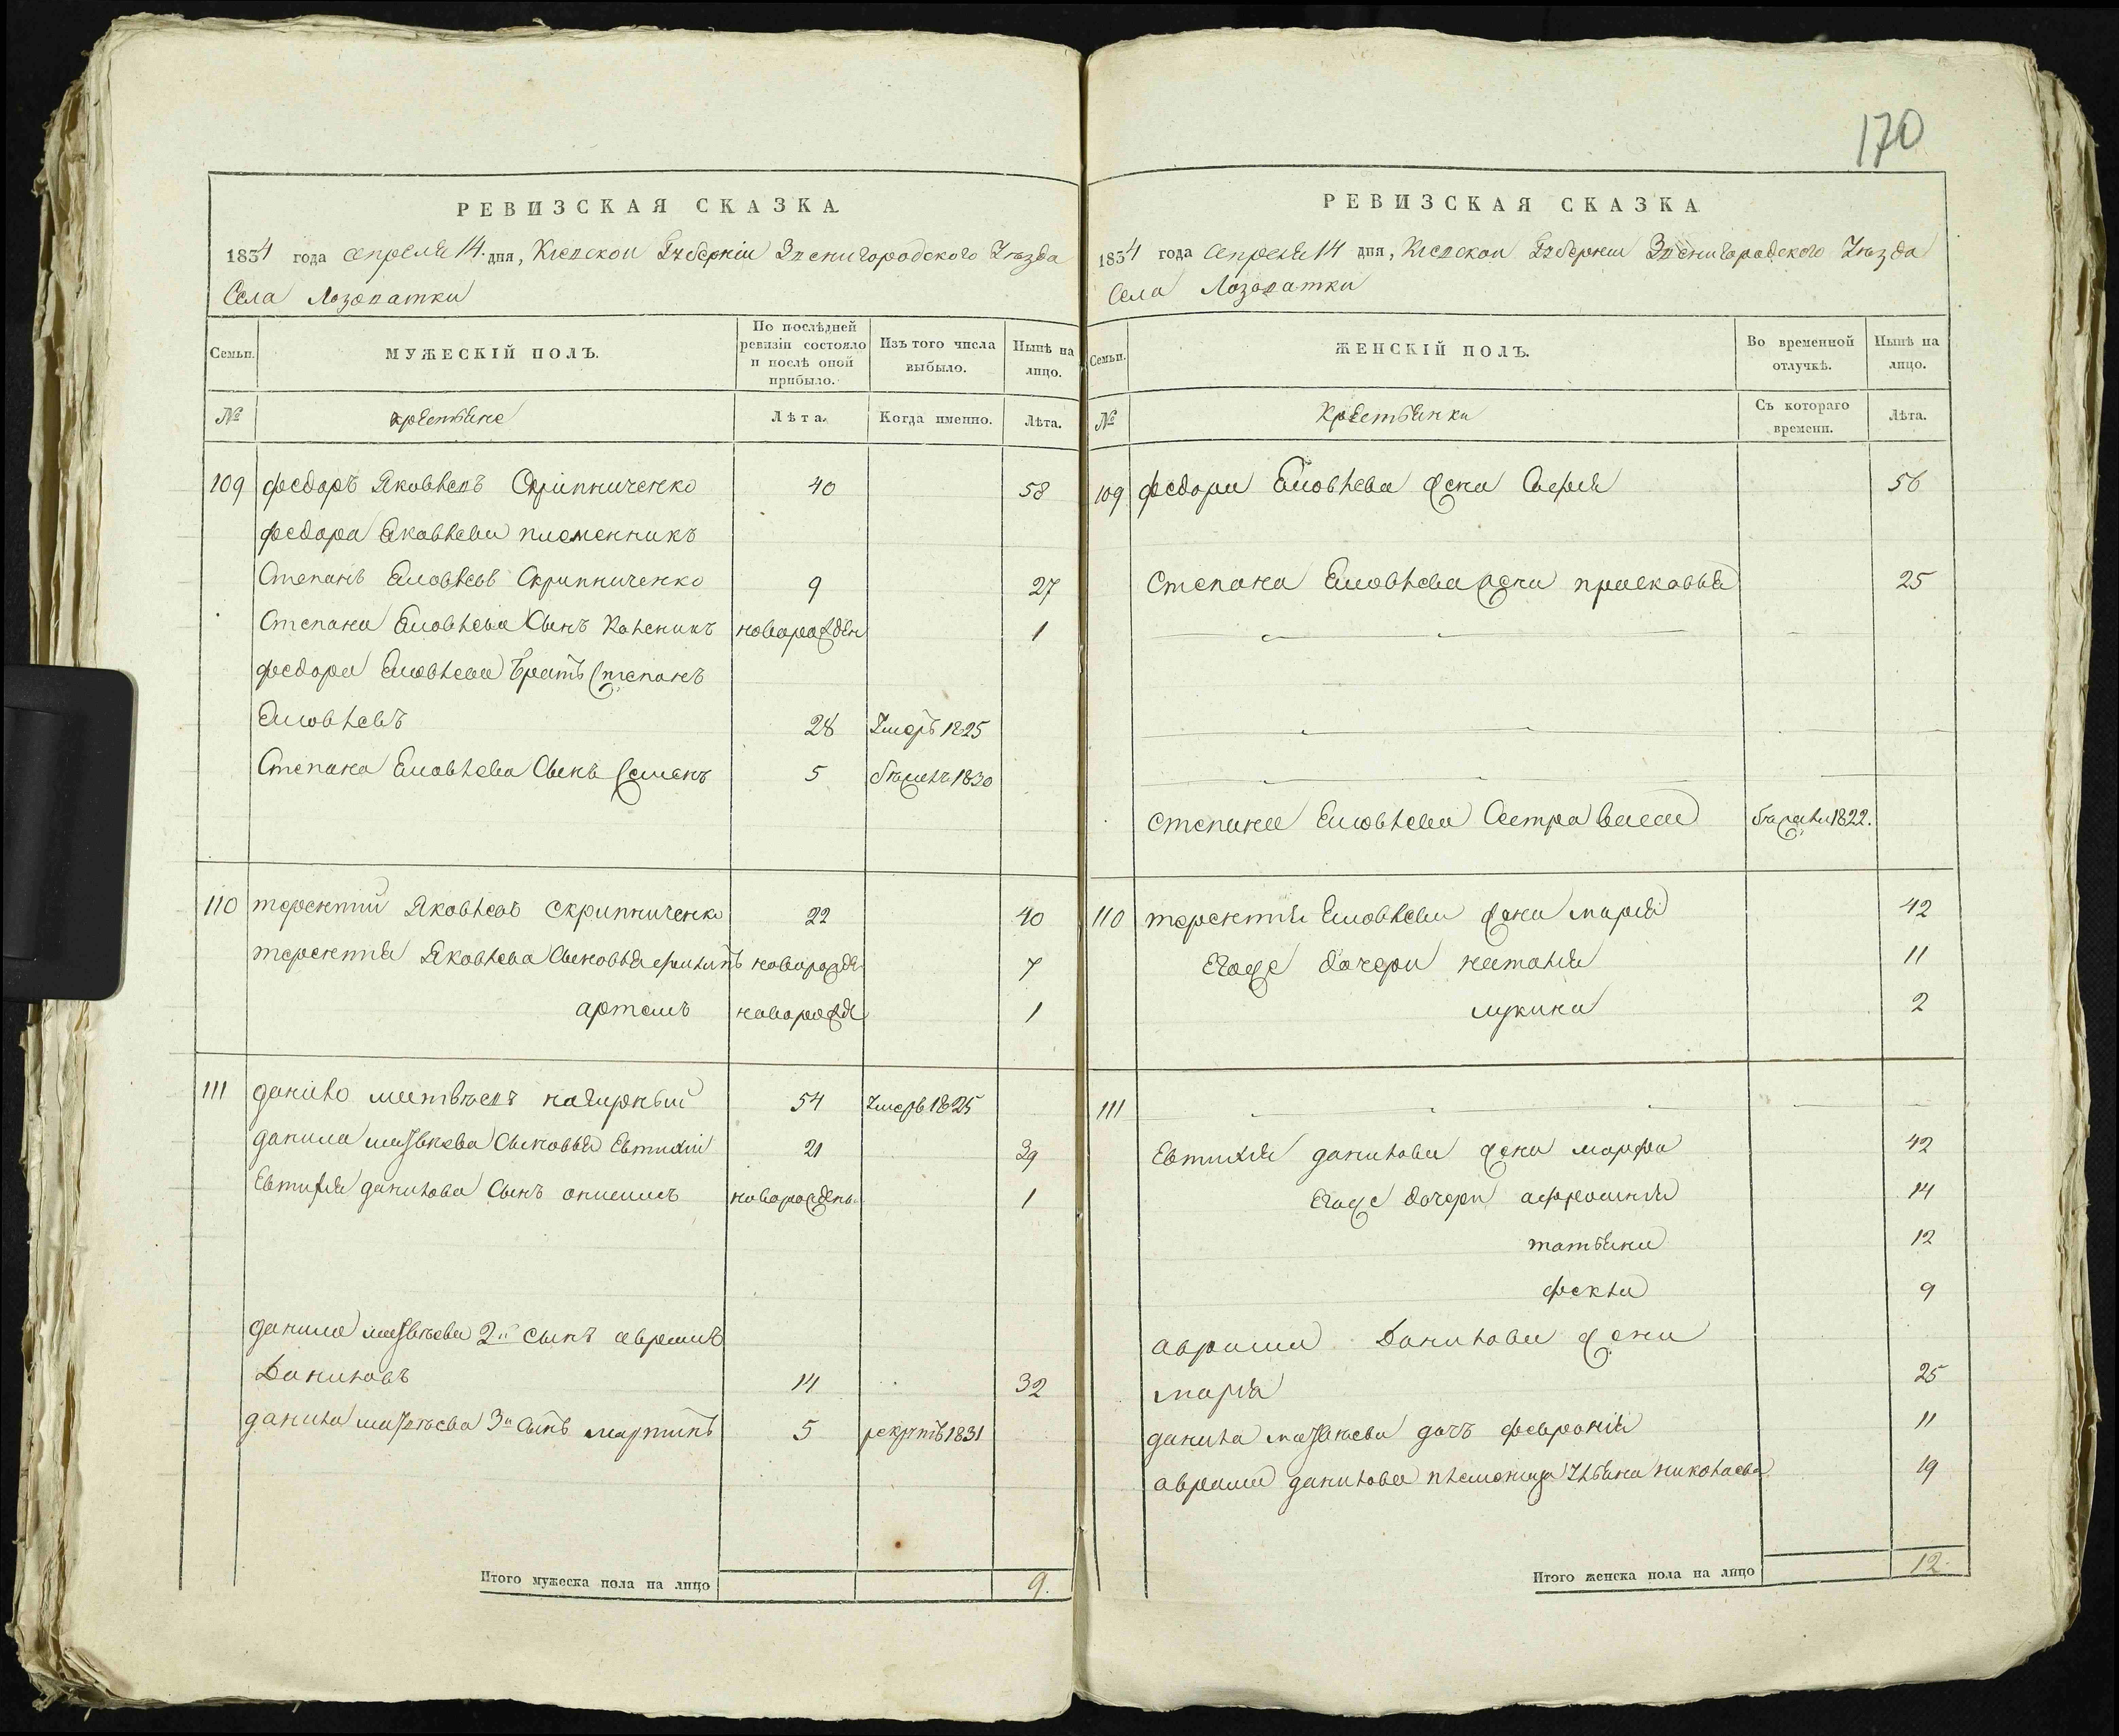 РЕВИЗСКАЯ СКАЗКА
1834 года апреля 14. дня, Киевской Губерніи Звенигородского Уезда
Села Лозоватки
Семьи.
МУЖЕСКІЙ ПОЛЪ.
По послѣдней ревизіи состояло и послѣ оной прибыло.
Изъ того числа выбыло.
Нынѣ на лицо.
№
крестьяне
Лѣта.
Когда именно.
Лѣта.
109 федоръ Яковлевъ Скрипниченко 40 58
федора Яковлева племенникъ
Степанъ Яковлевъ Скрипниченко 9 27
Степана Яковлева Сынъ новорожден 1
федора Яковлева братъ Степанъ
Яковлевъ 28 Умеръ 1825
Степана Яковлева Сынъ Семенъ 5 1830
110 терентий Яковлевъ Скрипниченко 22 40
терентия Яковлева Сыновья филипъ новорожде 7
артемъ новорожде 1
111 данило матвеевъ 54 Умеръ 1825
данила матвеева Сыновья Евтихий 21 39
Евтихия данилова Сынъ новорожденъ 1
данила матвеева 2й сынъ аврамъ
Даниловъ 14 32
данила матвеева 3й Сынъ мартинъ 5 рекрутъ 1831
Итого мужеска пола на лицо 9.
170
РЕВИЗСКАЯ СКАЗКА
1834 года апреля 14 дня, Киевской Губернии Звенигородского Уезда
Села Лозоватки
Семьи.
ЖЕНСКІЙ ПОЛЪ.
Во временной отлучкѣ.
Нынѣ на лицо.
№
крестьянки
Съ котораго времени.
Лѣта.
109 федора Яковлева жена 56
Степана Яковлева жена прасковья 25
степана Яковлева Сестра 1822.
110 терентия Яковлева жена мария 42
Егоже дочери наталия 11
2
111
Евтихия данилова жена марфа 42
Егоже дочери 14
татьяна 12
фекла 9
аврама Данилова жена
мария 25
данила матвеева дочь феврония 11
аврама данилова племеница Ульяна николаева 19
Итого женска пола на лицо 12.